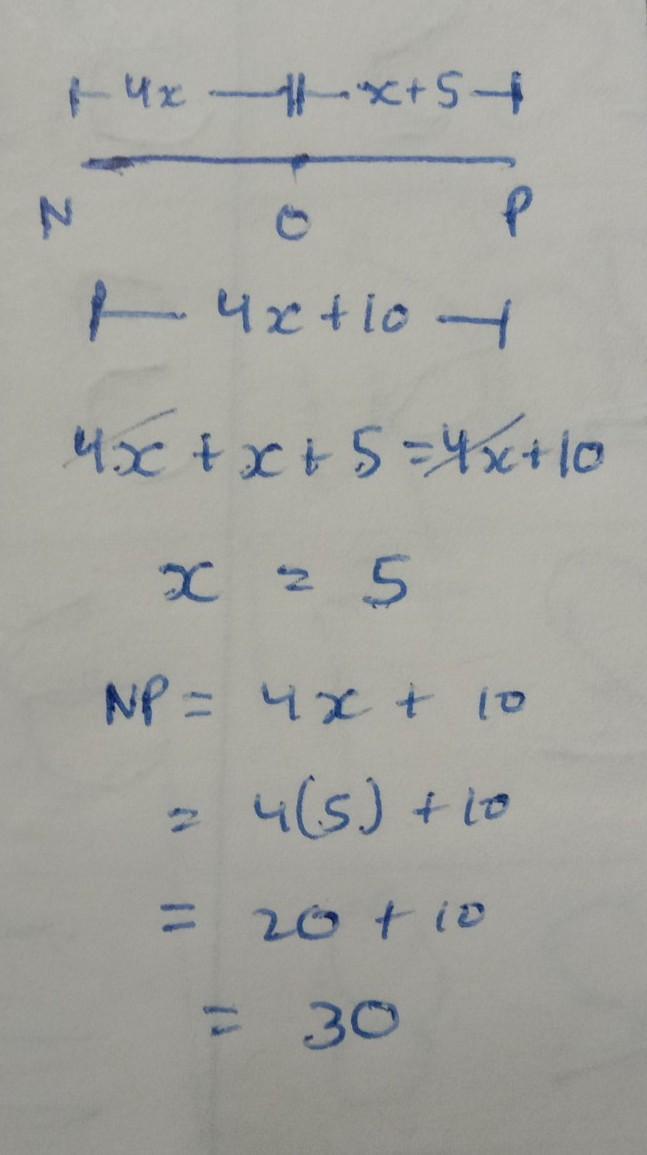 4x x+5
N O P
4x+10
4x + x + 5 = 4x + 10
x = 5
NP = 4x + 10
= 4(5) + 10
= 20 + 10
= 30